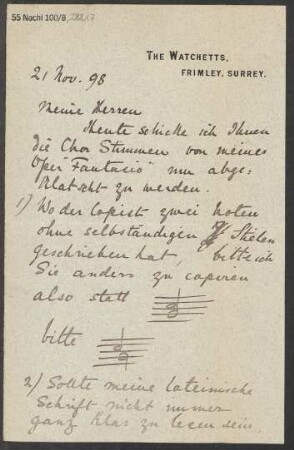 55 Nachl 100/B,
THE WATCHETTS,
FRIMLEY, SURREY.
21 Nov. 98
Meine Herren
Heute schicke ich Ihnen
die Chor Stimmen von meiner
Oper "Fantasio" um abge-
klatscht zu werden.
1) Wo der Copist zwei Noten
ohne selbständigen Stielen
geschrieben hat, bitte ich
Sie anders zu copiren
also statt
bitte
2) Sollte meine lateinische
Schrift nicht immer
ganz klar zu lesen sein,